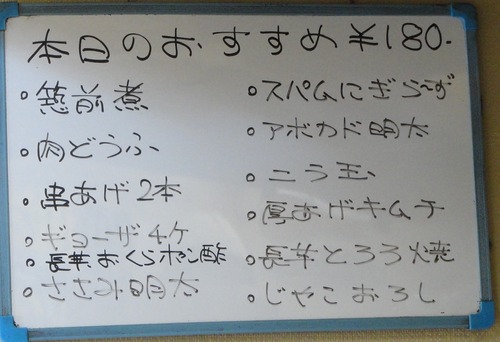 本日のおすすめ ¥180.
。筑前煮
。肉どうふ
。串あげ2本
。ギョーザ4ケ
。長芋おくらポン酢
。ささみ明太
。スパムにぎら〜ず
。アボカド明太
。ニラ玉
。厚あげキムチ
。長芋とろろ焼
。じゃこおろし